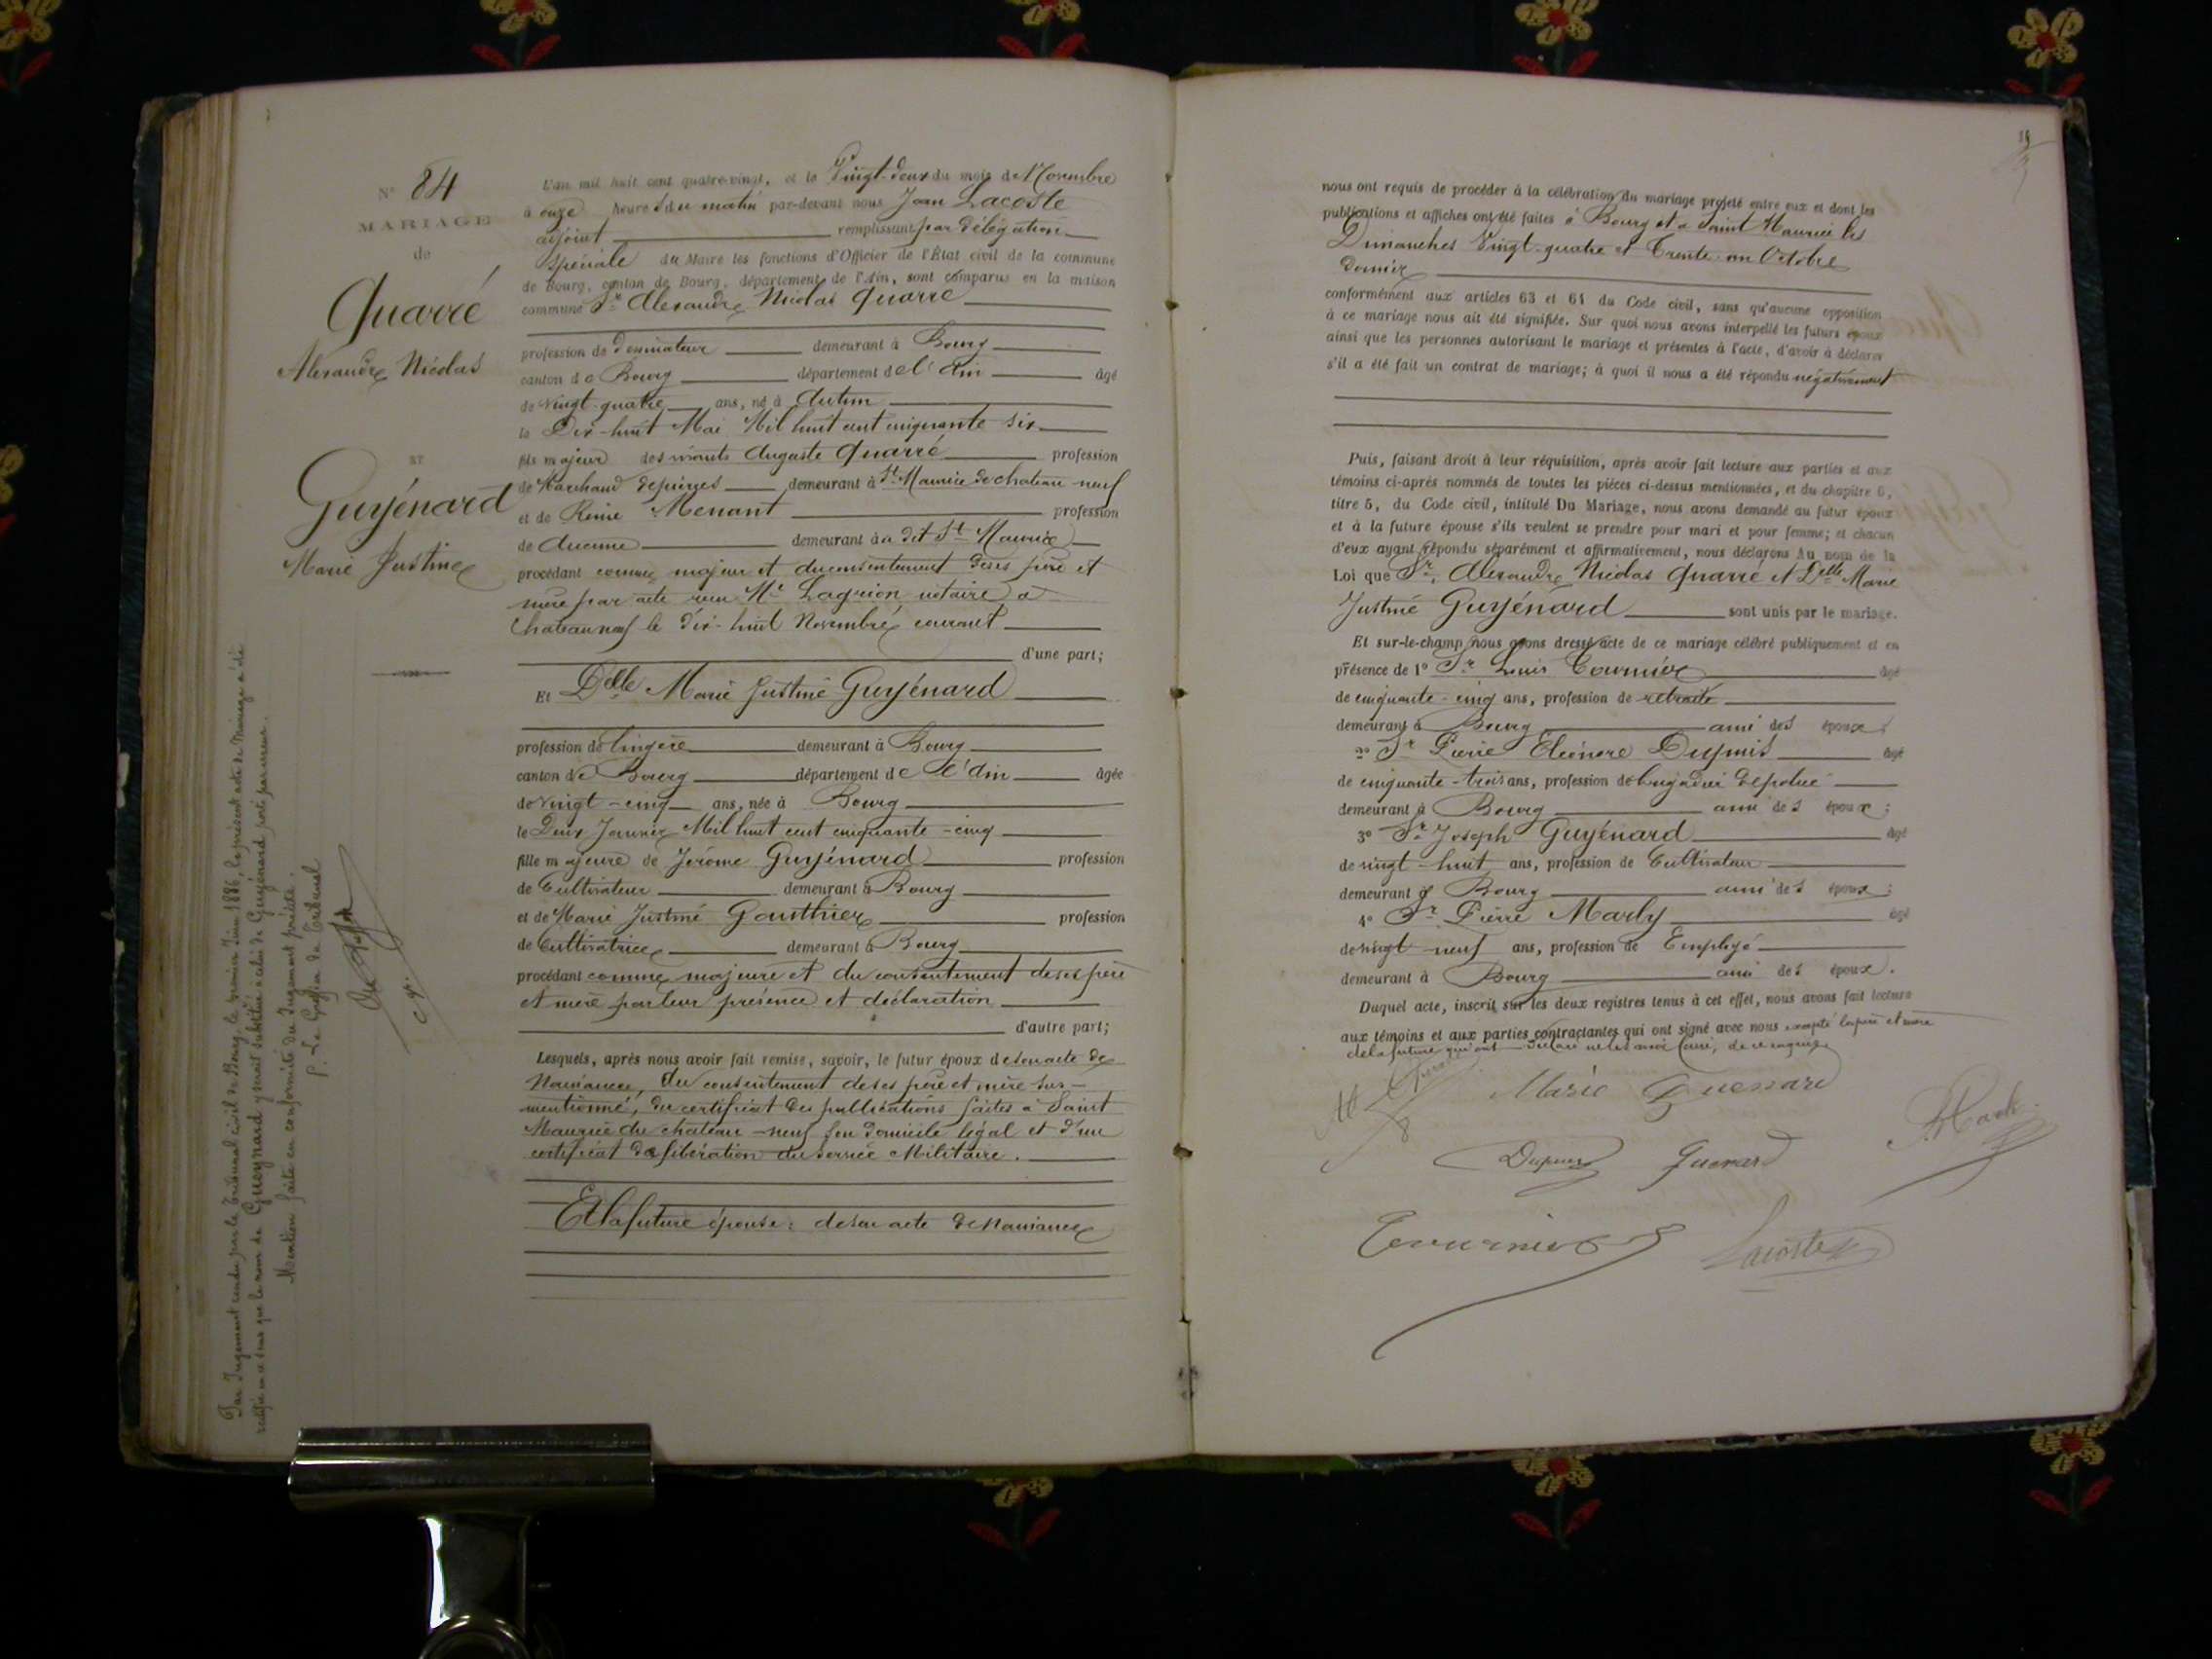 N° 84
MARIAGE
de
Quarré
Alexandre Nicolas
ET
Guyénard
Marie Justine
Par Jugement rendu par le Tribunal civil de Bourg, le premier Juin 1886, le présent acte de Mariage a été
rectifié en ce sens que le nom de Gueynard y serait substitué à celui de Guyénard porté par erreur.
Mention faite en conformité du Jugement précité.
P. Le Greffier du Tribunal
L'an mil huit cent quatre-vingt, et le Vingt-deux du mois de Novembre
à onze heures du matin par-devant nous Jean Lacoste
adjoint remplissant par délégation
spéciale du Maire les fonctions d'Officier de l'État civil de la commune
de Bourg, canton de Bourg, département de l'Ain, sont comparus en la maison
commune Sr Alexandre Nicolas Quarré
profession de dessinateur demeurant à Bourg
canton de Bourg département de l'Ain âgé
de vingt-quatre ans, né à Autun
le Dix-huit Mai Mil huit cent cinquante six
fils majeur des vivants Auguste Quarré profession
de Marchand de pierres demeurant à St Maurice de chateau neuf
et de Reine Menant profession
de Aucune demeurant au dit St Maurice
procédant comme majeur et du consentement de ses père et
mère par acte reçu Me Lagrion notaire à
Chateauneuf le dix-huit Novembre courant
d'une part;
Et Delle Marie Justine Guyénard
profession de lingère demeurant à Bourg
canton de Bourg département de l'Ain âgée
de vingt-cinq ans, née à Bourg
le Deux Janvier Mil huit cent cinquante-cinq
fille majeure de Jérome Guyénard profession
de Cultivateur demeurant à Bourg
et de Marie Justine Gonthier profession
de Cultivatrice demeurant à Bourg
procédant comme majeure et du consentement de ses père
et mère par leur présence et déclaration
d'autre part;
Lesquels, après nous avoir fait remise, savoir, le futur époux de son acte de
Naissance, du consentement de ses père et mère sus-
mentionné, du certificat des publications faites à Saint
Maurice du chateau-neuf son domicile légal et d'un
certificat de libération du service Militaire.
Et la future épouse: de son acte de Naissance
nous ont requis de procéder à la célébration du mariage projeté entre eux et dont les
publications et affiches ont été faites à Bourg et à Saint Maurice les
Dimanches Vingt-quatre et Trente-un Octobre
dernier
conformément aux articles 63 et 64 du Code civil, sans qu'aucune opposition
à ce mariage nous ait été signifiée. Sur quoi nous avons interpellé les futurs époux
ainsi que les personnes autorisant le mariage et présentes à l'acte, d'avoir à déclarer
s'il a été fait un contrat de mariage; à quoi il nous a été répondu négativement
Puis, faisant droit à leur réquisition, après avoir fait lecture aux parties et aux
témoins ci-après nommés de toutes les pièces ci-dessus mentionnées, et du chapitre 6,
titre 5, du Code civil, intitulé Du Mariage, nous avons demandé au futur époux
et à la future épouse s'ils veulent se prendre pour mari et pour femme; et chacun
d'eux ayant répondu séparément et affirmativement, nous déclarons Au nom de la
Loi que Sr. Alexandre Nicolas Quarré et Delle Marie
Justine Guyénard sont unis par le mariage.
Et sur-le-champ nous avons dressé acte de ce mariage célébré publiquement et en
présence de 1° Sr Louis Tournier âgé
de cinquante-cinq ans, profession de retraité
demeurant à Bourg ami des époux;
2° Sr Pierre Eléonore Dupuis âgé
de cinquante-trois ans, profession de brigadier de police
demeurant à Bourg ami des époux;
3° Sr Joseph Guyénard âgé
de vingt-huit ans, profession de Cultivateur
demeurant à Bourg ami des époux;
4° Sr Pierre Marly âgé
de vingt-neuf ans, profession de Employé
demeurant à Bourg ami des époux.
Duquel acte, inscrit sur les deux registres tenus à cet effet, nous avons fait lecture
aux témoins et aux parties contractantes qui ont signé avec nous excepté les père et mère
de la future qui ont déclaré ne les avoir faire, de ce enquis.
Marie Guenard
Dupuis Guenard
Tournier Lacoste